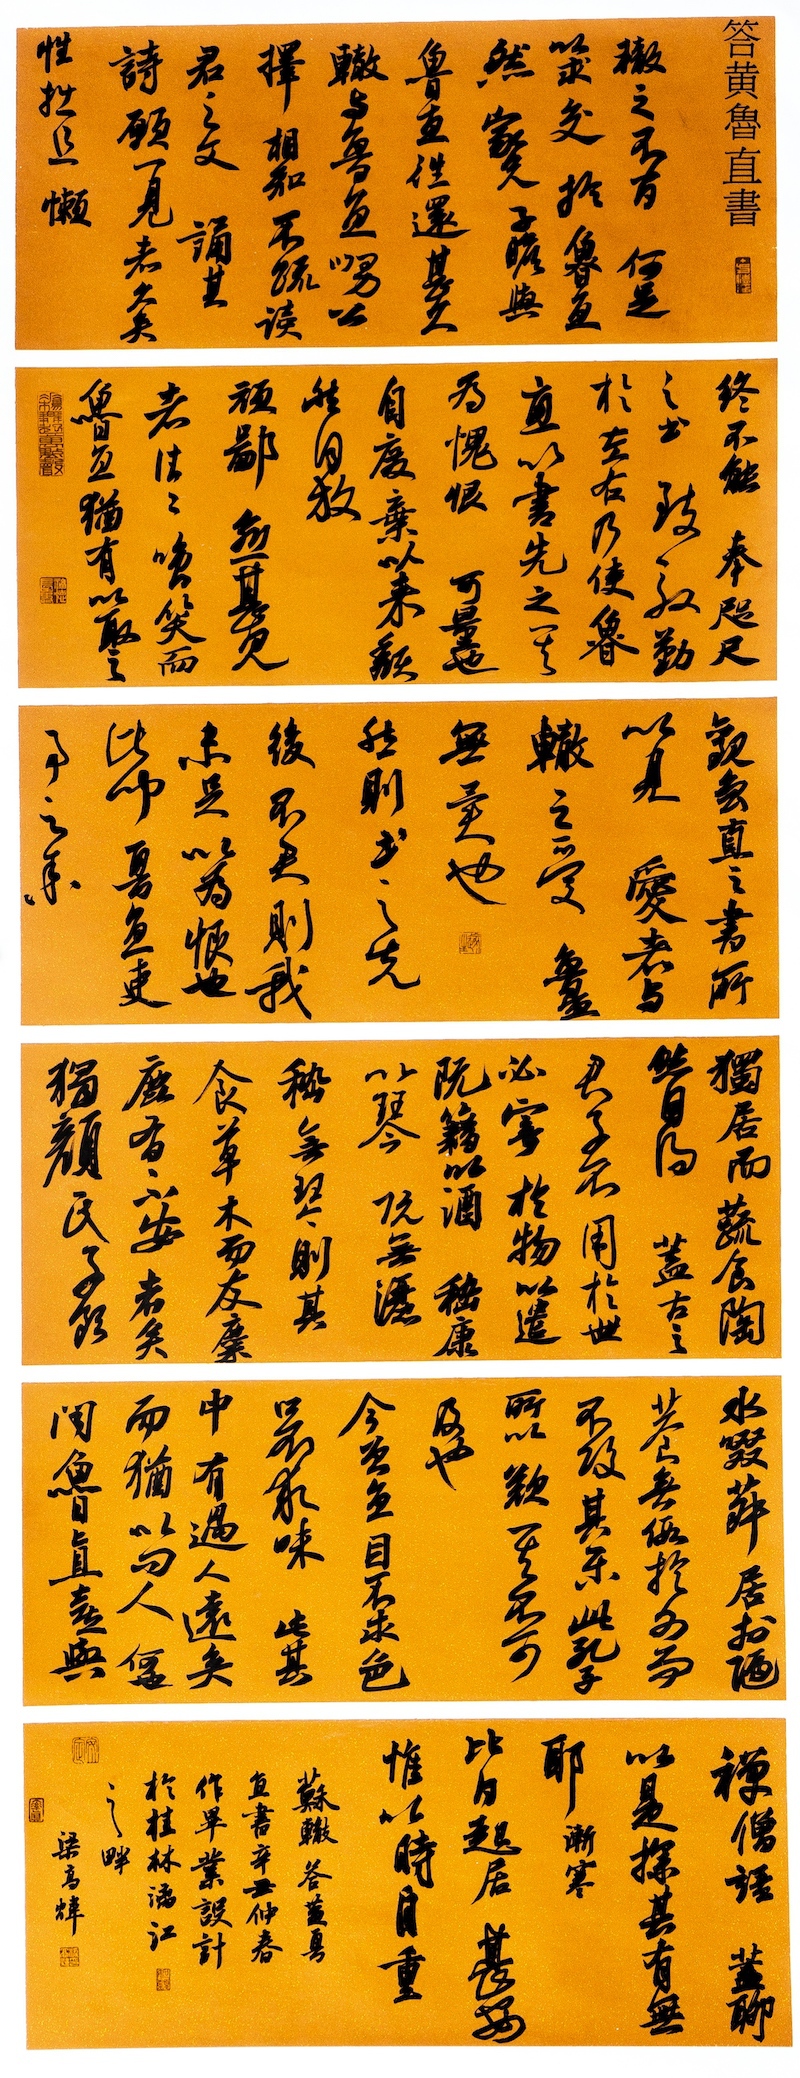 答黄魯直書
轍之不肖何足
以求交於魯直
然家兄子瞻與
魯直往還甚久
轍與魯直舅公
擇相知不疏读
君之文誦其
詩願一見者久矣
性拙且懶
終不能奉咫尺
之书致殷勤
於左右乃使魯
直以書先之其
為愧恨可量也
自廢棄以来頽
然自放
頑鄙愈甚見
者往々嗤笑而
魯直猶有以取之
觀魯直之書所
以見愛者与
轍之所愛魯直
無異也
然則书之先
後不君則我
未足以為恨也
比聞魯直吏
事之餘
獨居而蔬食陶
然自得蓋古之
君子不用於世
必寄於物以遣
阮籍以酒嵇康
以琴阮無酒
嵇無琴則其
食草木而友麋
鹿有不安者矣
獨顔氏子飲
水啜菽居於陋
巷無假於外而
不改其樂此孔子
所以歎其不可
及也
今魯直目不求色
口不求味此其
中有過人遠矣
而猶以问人何也
闻魯直喜與
禅僧語蓋聊
以是探其有無
耶漸寒
比日起居甚安
惟以時自重
蘇轍答黄魯
直書辛丑仲春
作畢業設計
於桂林漓江
之畔
梁高煒